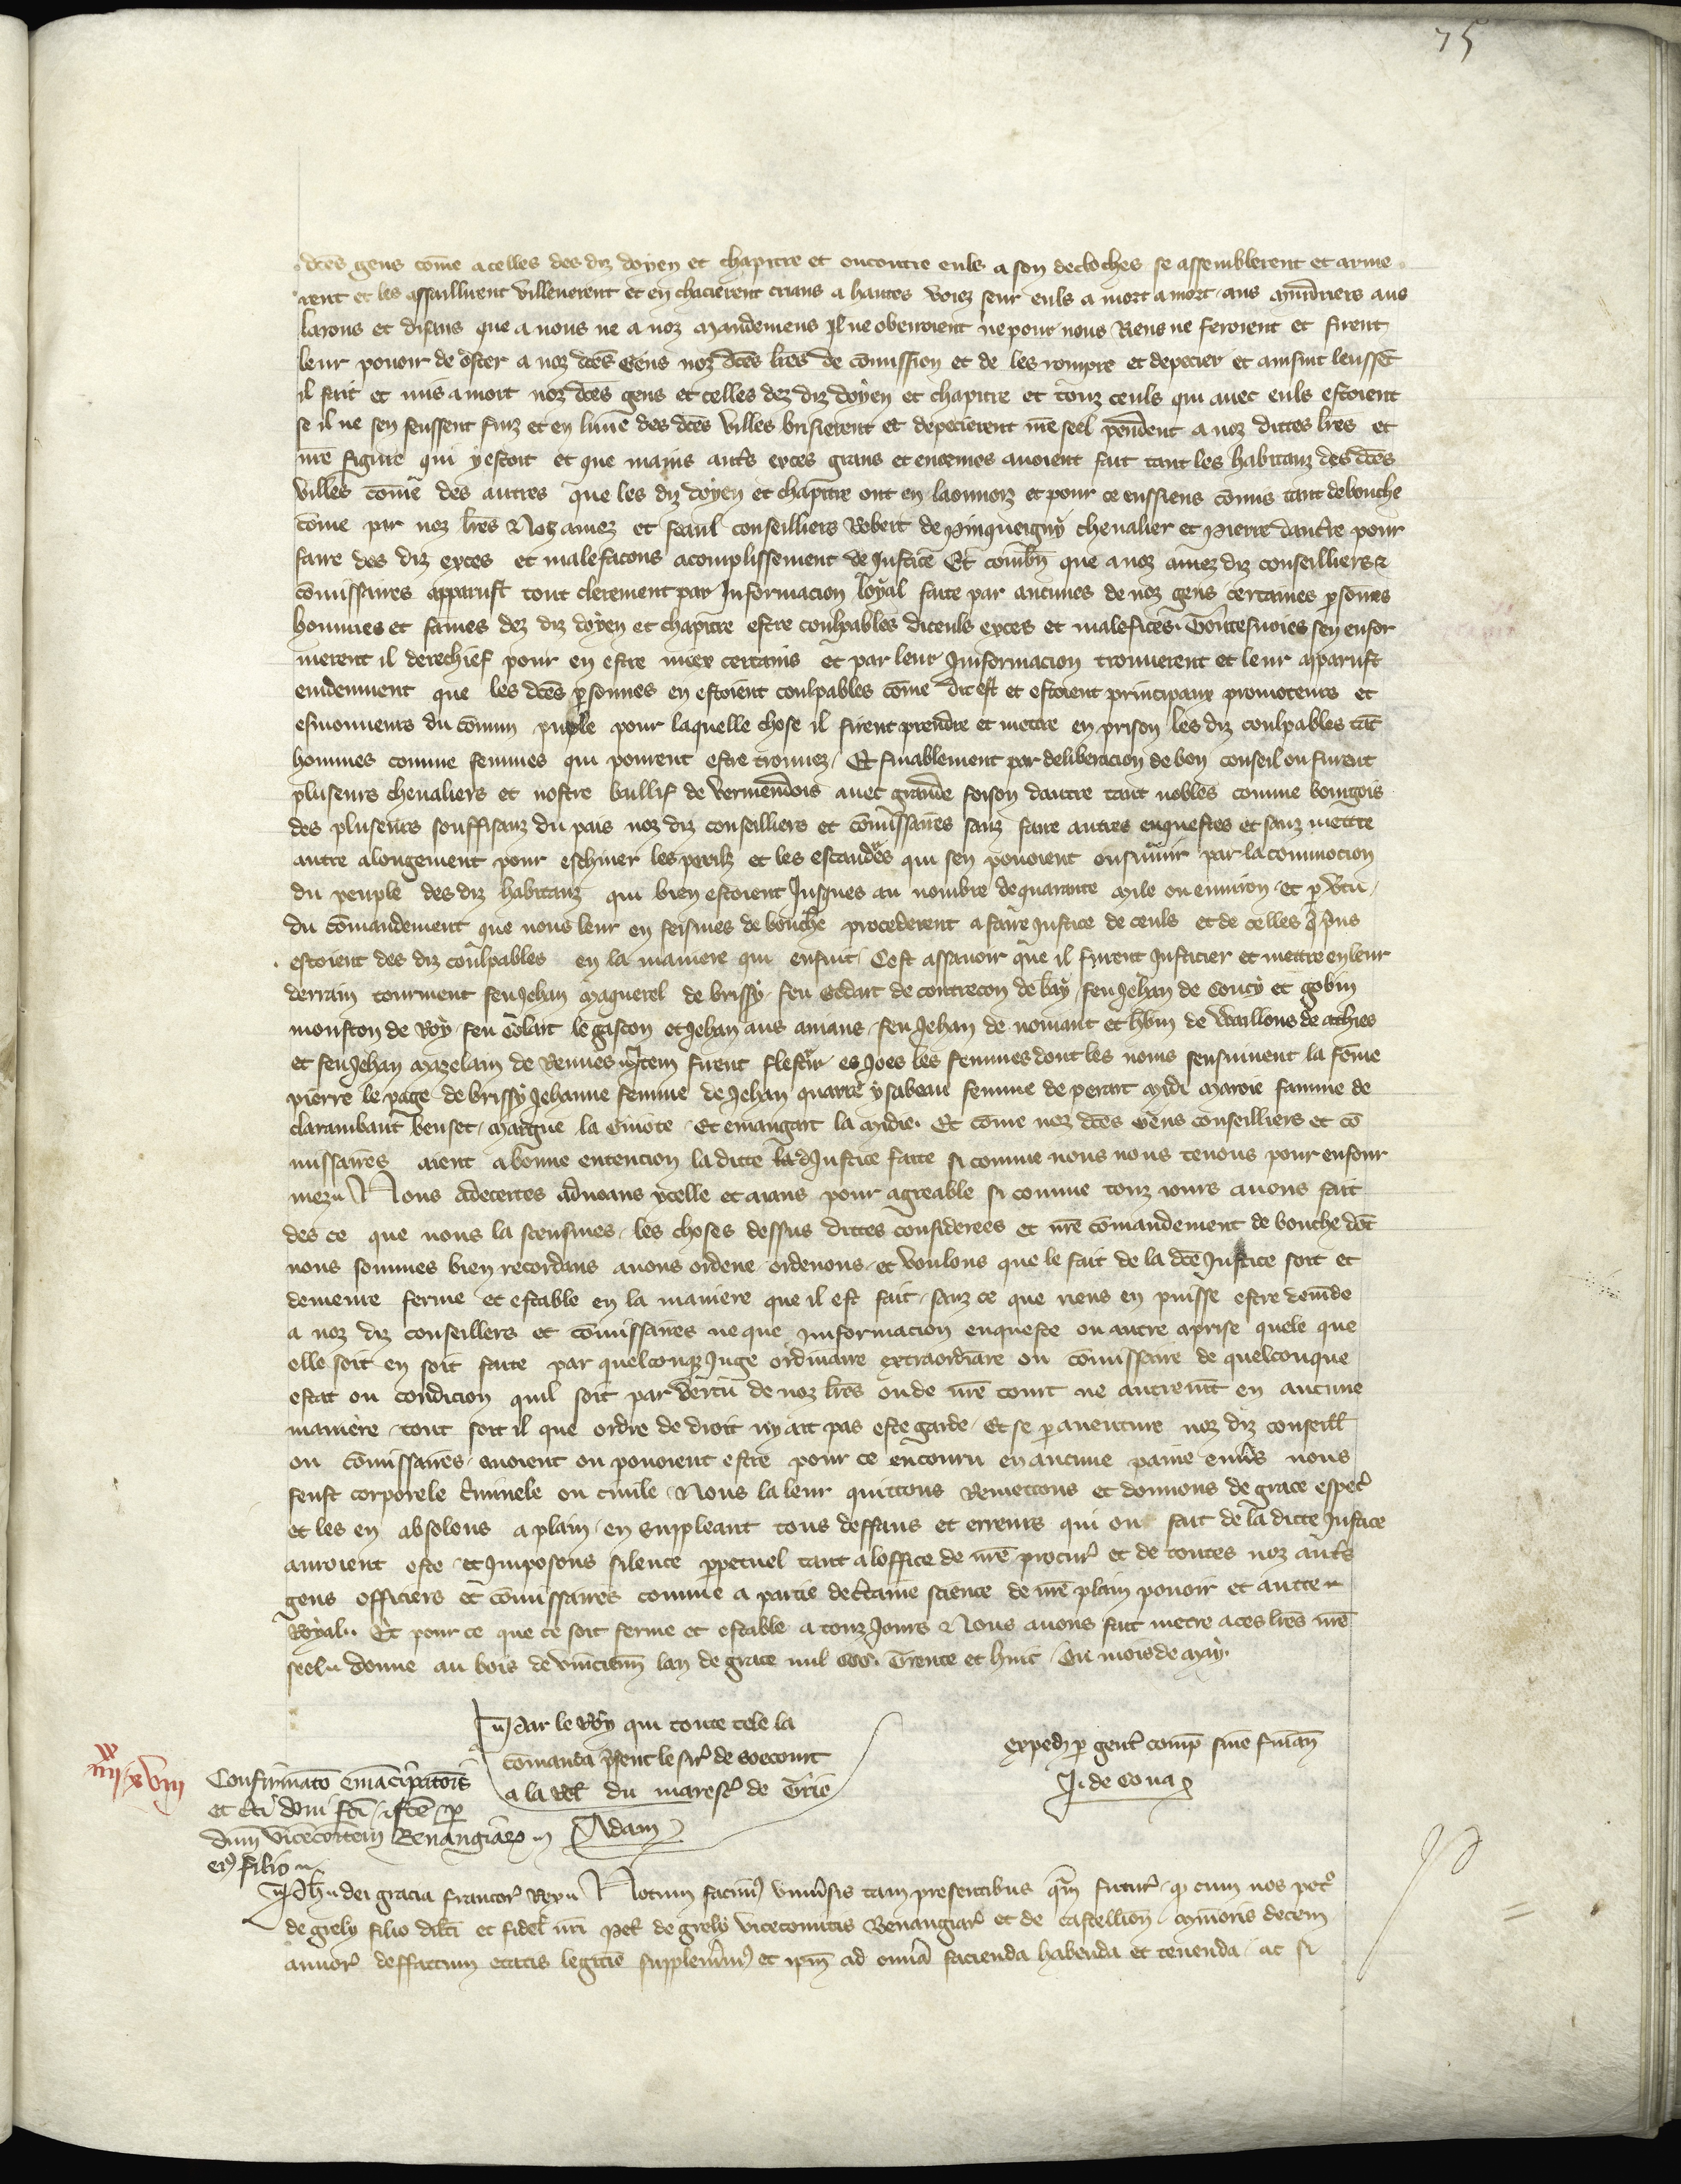 75
dc̃es gens cõme a celles des diz doyen et chapitre et encontre euls a son de cloches se assemblerent et arme
rent et les assaillirent villenerent et en chacierent crians a hautes voiz seur euls a mort a mort aus murdriers aus
larrons et disans que a nous ne a noz mandemens il ne obeiroient ne pour nous Riens ne feroient et firent
leur pouoir de oster a noz dc̃es Gens noz dc̃es lr̃es de cõmission et de les rompre et depecier et ainsint leussẽt
il fait et mis a mort noz dc̃es gens et celles dez diz doyen et chapitre et touz ceuls qui auec euls estoient
se il ne sen feussent fuiz et en lune des dc̃es villes brisierent et depecierent nr̃e seel pendent a noz dittes lr̃es et
nr̃e figure qui y estoit et que mains aut̃s exces grans et enormes auoient fait tant les habitanz des dc̃es
villes cõme des autres que les diz doyen et chapitre ont en laonnoiz et pour ce eussiens cõmis tant de bouche
cõme par noz lr̃es Noz amez et feaul conseilliers Robert de Pinqueigny cheualier et Pierre dautre pour
faire des diz exces et malefacons acomplissement de Justice Et combñ que a noz amez diz conseilliers &
cõmissaires apparust tout clerement par Informacion loyal faite par aucunes de noz gens certaines psõnes
hommes et fames dez diz doyen et chapitre estre coulpables diceuls exces et malefices. Toutesuoies sen enfor
merent il derechief pour en estre miex certains et par leur Informacion trouuerent et leur apparust
euidemment que les dc̃es psonnes en estoient coulpables cõme dit est et estoient principaux promoteurs et
esmouueurs du cõmun pueple pour laquelle chose il firent prendre et mettre en prison les diz coulpables tãt
hommes comme femmes qui pourent estre trouuez. Et finablement par deliberacion de bon conseil ou furent
pluseurs cheualiers et nostre baillif de Vermendois auec grande foison dautre tant nobles comme bourgois
des pluseurs souffisanz du pais noz diz conseilliers et cõmissaires sanz faire autres enquestes et sanz mettre
autre alongement pour eschiuer les perilz et les escandes qui sen pouoient ensuiuir par la commocion
du peuple des diz habitanz qui bien estoient Jusques au nombre de quarante mile ou enuiron et p vertu
du cõmandement que nous leur en feismes de bouche procederent a faire Justice de ceuls et de celles q̃ pris
estoient des diz coulpables en la maniere qui ensuit Cest assauoir que il firent Justicier et mettre en leur
derrain tourment feu Jehan Maquerel de brissy feu Oedart de contrecon de bay feu Jehan de Coucy et gobin
mouston de Roy feu Colart le gascon et Jehan aus amans feu Jehan de nomant et hb̃in de Waillons de athies
et feu Jehan Mazelain de Vennes Item firent flestrir es Joes les femmes dont les noms sensuiuent la fẽme
Pierre le page de brissy Jehanne femme de Jehan quarre ysabeau femme de perart Midi Maroie famme de
clarambaut beuset Margue la Guiote Et emangart la Midie. Et cõme noz dc̃es Gens conseilliers et cõ
missaires aient a bonne entencion la ditte Justice faite si comme nous nous tenons pour enfour
mez Nous adecertes adnoans ycelle et aians pour agreable si comme touz iours auons fait
des ce que nous la sceusmes les choses dessus dittes considerees et nr̃e cõmandement de bouche dõt
nous sommes bien recordans auons ordene ordenons et voulons que le fait de la dc̃e Justice soit et
demeure ferme et estable en la maniere que il est fait sanz ce que riens en puisse estre demãde
a noz diz conseillers et cõmissaires ne que Informacion enqueste ou autre aprise quele que
elle soit en soit faite par quelconq̃ Juge ordinaire extraordinare ou cõmissaire de quelconque
estat ou condicion quil soit par vertu de noz lr̃es ou de nr̃e court ne autremt̃ en aucune
maniere tout soit il que ordre de droit ny ait pas este garde Et se p auenture noz diz conseill̃
ou cõmissaires auoient ou pouoient estre pour ce encouru en aucune paine enu̾s nous
feust corporele c̃minele ou ciuile Nous la leur quittons Remettons et donnons de grace espec̃
et les en absolons a plain en suppleant tous deffaus et erreurs qui ou fait de la ditte Justice
auroient este et Imposons silence ppetuel tant a loffice de nr̃e procur̃ et de toutes noz aut̃s
gens officiers et cõmissaires comme a partie de c̃taine science de nr̃e plain pouoir et autte
Royal. Et pour ce que ce soit ferme et estable a touz Jours Nous auons fait metre a ces lr̃es nr̃e
seel. Donne au bois de vinciennes lan de grace mil ccc. Trente et huit Ou mois de May.
Par le Roy qui toute tele la
cõmanda p̃sent le sir̃ de Soecourt
a la rel̃ du maresc̃ de Trie
Adam
exped p gent̃ comp̃ sine finan̄
J. de Cona
iiii xx xviii
Confirmato emancipatoris
et c̃ti doni fc̃i p
dnm̃ vicecomtem Benangiar
ei9 filio
Ph. dei gracia francor̃ Rex Notum facim9 vniu̾sis tam presentibus q̃m futur̃ q cum nos pet̃o
de grely filio dilc̃i et fidel̃ nr̃i Pet̃ de grely vicecomitis Benangiar̃ et de castellion̄ minoris decem
annor̃ deffectum etatis legitie suppleuim9 et ipm̃ ad omnia facienda habenda et tenenda ac si